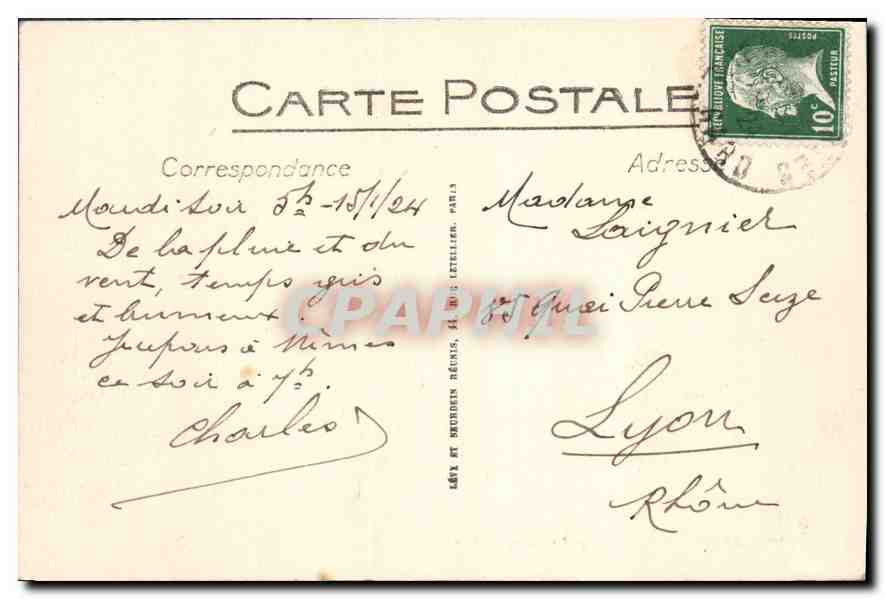 CARTE POSTALE
REPUBLIQUE FRANÇAISE
POSTES
PASTEUR
10c
GARD
Correspondance
Mardi soir 5h - 15/1/24
De la pluie et du
vent, temps gris
et brumeux.
Je pars à Nîmes
ce soir à 7h.
Charles
LÉVY ET NEURDEIN RÉUNIS, 44, RUE LETELLIER, PARIS
Adresse
Madame
Laignier
85 Quai Pierre Scize
Lyon
Rhône
CPAPHIL